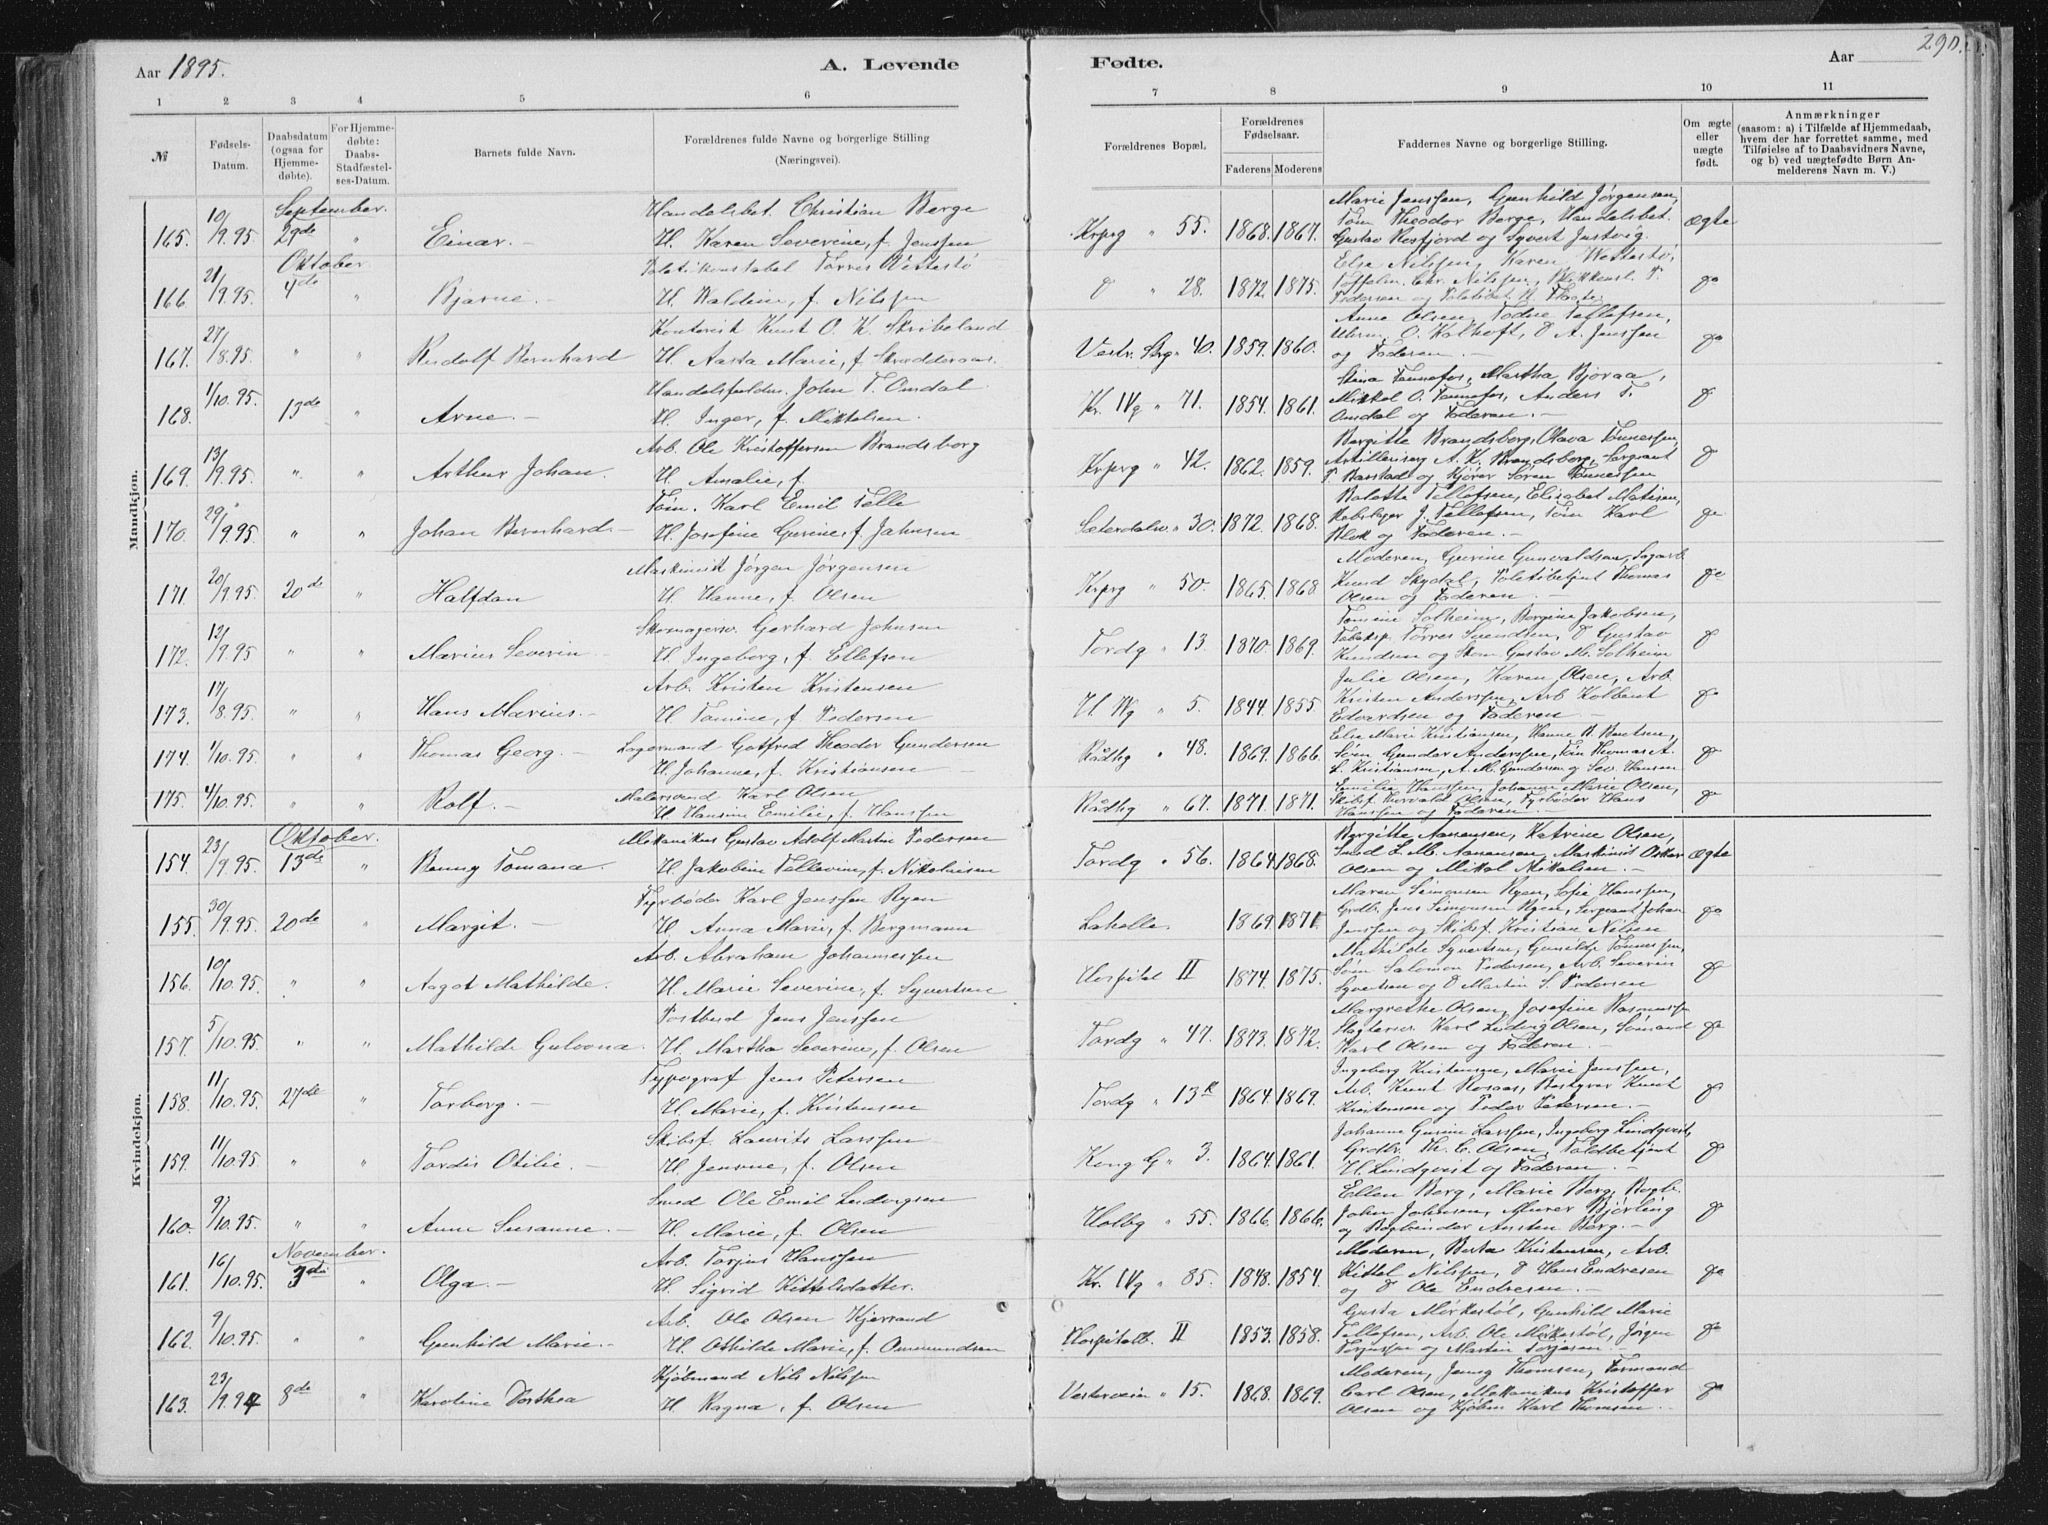 290.
Aar 1895.
A. Levende
Fødte.
Aar
1 2 3 4 5 6 7 8 9 10 11
№
Fødsels-Datum.
Daabsdatum (ogsaa for Hjemmedøbte).
For Hjemmedøbte: Daabs-Stadfæstelses-Datum.
Barnets fulde Navn.
Forældrenes fulde Navne og borgerlige Stilling (Næringsvei).
Forældrenes Bopæl.
Forældrenes Fødselsaar.
Faderens Moderens
Faddernes Navne og borgerlige Stilling.
Om ægte eller uægte født.
Anmærkninger (saasom: a) i Tilfælde af Hjemmedaab, hvem der har forrettet samme, med Tilføielse af to Daabsvidners Navne, og b) ved uægtefødte Børn Anmelderens Navn m. V.)
Mandkjøn.
September.
165. 10/9.95. 29de " Einar. — Handelsbet. Christian Berge
H. Karen Severine, f. Jenssen
Krprg " 55. 1868. 1867. Marie Jenssen, Gunhild Jørgensen,
Tøm. Theodor Berge, Handelsbet.
Gustav Rosfjord og Syvert Justvig. ægte
Oktober
166. 21/9.95. 4de " Bjarne. — Politikonstabel Torres Westestø
H. Valdine, f. Nilssen
D " 28. 1872. 1875. Else Nilssen, Karen Westestø,
Chr. Nilssen, T.
Pedersen og go
167. 27/8.95. " " Rudolf Bernhard Kontorist Knut O. K. Skribeland
H. Aasta Marie, f.
Vestr. Strg " 40. 1859. 1860. Anne Olsen, Todne Tellefsen,
Uhrm. O. Kalhoft, D A. Jenssen
og Faderen. — go
168. 1/10.95. 13de " Arne. — John T. Omdal
H. Inger, f. Mikkelsen.
Kr. IVg " 71. 1854. 1861. Stina Tonnefos, Martha Bjoraa,
Mikkel O. Tonnefos, Anders T.
Omdal og Faderen. — go
169. 13/9.95. " " Arthur Johan. Arb. Ole Kristoffersen Brandsborg
H. Amalie, f.
Krprg " 42. 1862. 1859. Bergitte Brandsborg, Olava Tønnessen,
A. K. Brandsborg, Sergeant
T. Barstad og Kjører Søren Tønnessen go
170. 29/9.95. " " Johan Bernhard. — Tøm. Karl Emil Telle
H. Josefine Gurine, f. Jahnsen
Seterdalsv " 30. 1872. 1868. Bolette Tellefsen, Elisabet Matisen,
Rebslager J. Tellefsen, Tøm Karl
Blek og Faderen. — go
171. 20/9.95. 20de " Halfdan Maskinist Jørgen Jørgensen
H. Hanne, f. Olsen
Krprg " 50. 1865. 1868. Moderen, Gurine Gunvaldsen, Sagarb.
Knud Skydal, Politibetjent Thomas
Olsen og Faderen. — go
172. 12/9.95. " " Marius Severin. Skomagersv. Gerhard Johnsen
H. Ingeborg, f. Ellefsen
Tordg " 13. 1870. 1869. Tomine Solheim, Borgine Jakobsen,
Torres Svendsen, D Gustav
Knudsen og Skom. Gustav M. Solheim go
173. 17/8.95. " " Hans Marius. — Arb. Kristen Kristensen
H. Tomine, f. Pedersen
H. IVg " 5. 1844. 1855. Julie Olsen, Karen Olsen, Arb.
Kristen Anderssen, Arb Kolbent
Edvardsen og Faderen — go
174. 1/10.95. " " Thomas Georg. — Lagermand Gotfred Theodor Gundersen
H. Johanne, f. Kristiansen
Rådhg " 48. 1869. 1866. Else Marie Kristiansen, Hanne
Søm. Gunder Anderssen, Tøm Thomas A.
L. Kristiansen, A. M. Gundersen og Sev. Hansen go
175. 4/10.95. " " Rolf. — Malersvend Karl Olsen
H. Hansine Emilie, f. Hanssen
Rådhg " 67. 1871. 1871. Emilie Hanssen, Johanne Marie Olsen,
Skibsf. Thorvald Olsen, Fyrbøder Hans
Hanssen og Faderen. go
Kvindekjøn.
Oktober.
154. 23/9.95. 13de " Benny Tomana. Mekanikus Gustav Adolf Martin Pedersen
H. Jakobine Tellevine, f. Nikolaisen
Tordg " 56. 1864. 1868. Byrgitte Aanensen, Katrine Olsen,
Smed L. M. Aanensen, Maskinist Oskar
Olsen og Mikal Mikkelsen. — ægte
155. 30/9.95. 20de " Margit. — Fyrbøder Karl Jenssen Ryen
H. Anna Marie, f. Bergmann
Lahelle. 1869. 1871. Maren Simonsen Ryen, Sofie Hanssen,
Grdbr. Jens Simonsen Ryen, Sergeant Johan
Jenssen og Skibsf. Kristian Nilsen go
156. 10/10.95. " " Aagot Mathilde. Arb. Abraham Johannessen
H. Marie Severine, f. Syvertsen
Hospital II 1874. 1875. Mathilde Syvertsen, Gunilde Tønnessen,
Søm Salomon Pedersen, Arb. Severin
Syvertsen og D Martin S. Pedersen go
157. 5/10.95. " " Mathilde Gulvona. Postbud Jens Jenssen
H. Martha Severine, f. Olsen
Tordg " 47. 1873. 1872. Margrethe Olsen, Josefine Rasmussen
Slagtersv. Karl Ludvig Olsen, Sømand
Karl Olsen og Faderen. — go
158. 11/10.95. 27de " Torborg. — Typograf Jens Petersen
H. Marie, f. Kristensen
Tordg " 13B 1864. 1869. Ingeborg Kristensen, Marie Jenssen,
Arb. Knut Rosaas, Bestyrer Knut
Kristensen og Peder Petersen. — go
159. 11/10.95 " " Tordis Otilie. — Skibsf. Laurits Larssen
H. Jensine, f. Olsen
Kong G " 3. 1864. 1861. Johanne Gurine Larssen, Ingeborg Lindqvist,
Grdbr. Th. C. Olsen, Toldbetjent
H. Lindqvist og Faderen. — go
160. 9/10.95. " " Anne Susanne. — Smed Ole Emil Ludvigsen
H. Marie, f. Olsen
Holbg " 55. 1866. 1866. Ellen Berg, Marie Berg, Bogb.
John Johnsen, Murer Bjørling
og Bogbinder Austen Berg. — go
November.
161. 16/10.95. 3die " Olga. — Arb. Torjus Hanssen
H. Sigrid Kittelsdatter.
Kr. IVg " 85. 1848. 1854. Moderen, Berta Kristensen, Arb.
Kittel Nilssen, D Hans Endresen
og D Ole Endresen. — go
162. 9/10.95. " " Gunhild Marie. — Arb. Ole Olsen Hjerrand
H. Othilde Marie, f. Ommundsen
Hospitalb. II 1853. 1858. Gusta Mørkestøl, Gunhild Marie
Tellefsen, Arb. Ole Mørkestøl, Jørgen
Torjussen og Martin Torjesen. — go
163. 23/9.94 8de " Karoline Dorthea Kjøbmand Nils Nilssen
H. Ragna, f. Olsen
Vesterveien " 15. 1868. 1869. Moderen, Jenny Thomsen, Formand
Carl Olsen, Mekanikus Kristoffer
Olsen og Kjøbm Karl Thomsen. — go